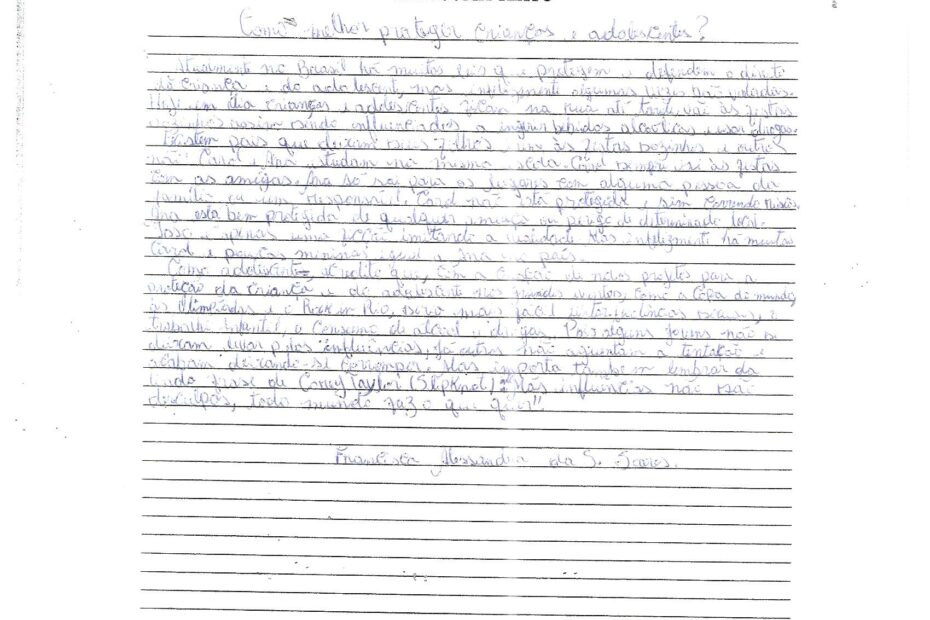 Como melhor proteger crianças e adolescentes?
Atualmente no Brasil há muitas leis que protegem e defendem o direito
da criança e do adolescente, mas infelizmente algumas vezes não
Hoje em dia crianças e adolescentes ficam na rua até tarde, vão às festas
sozinhos sendo influenciados a ingerir bebidas alcoólicas e usar drogas.
Existem pais que deixam seus filhos irem às festas sozinhos e outros
não. Carol e Ana estudam na mesma escola. Carol sempre vai às festas
com as amigas. Ana só sai para os lugares com alguma pessoa da
família ou um responsável. Carol não está protegida e sim correndo riscos.
Ana está bem protegida de qualquer ameaça ou perigo de determinado local.
é apenas uma ficção imitando a realidade. Mas infelizmente há muitas
Carol e poucas meninas igual a Ana no país.
Como adolescente, acredito que, com a criação de novos projetos para a
proteção da criança e do adolescente nos grandes eventos, como a Copa do mundo,
as Olimpíadas e o Rock in Rio, mais fácil
trabalho infantil, o consumo de álcool e drogas. Pois alguns jovens não se
deixam levar pelas influências, já outros não aguentam a tentação e
acabam deixando-se corromper. Mas importa também lembrar da
linda frase de Corey Taylor (Slipknot): "Más influências não são
desculpas, todo mundo faz o que quer".
Francisca Alessandra da S. Soares.